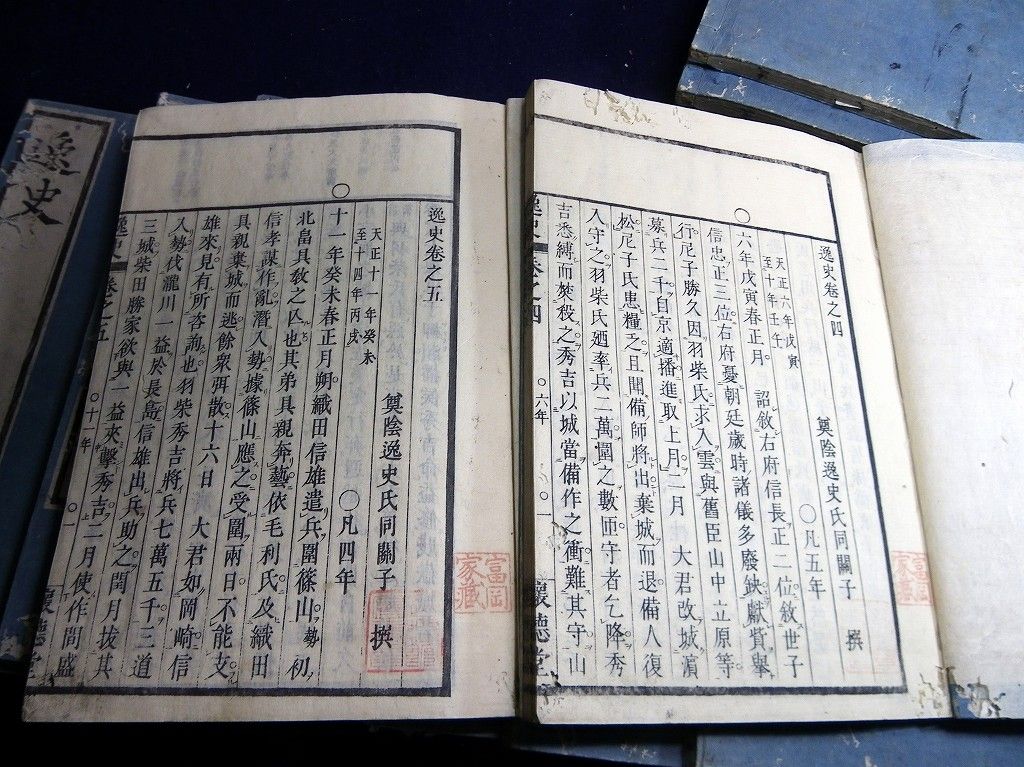 逸史卷之四
奠陰逸史氏同關子　撰
天正六年戊寅
至十年壬午
〇凡五年
〇六年戊寅春正月　詔敘右府信長正二位敘世子
信忠正三位右府憂朝廷歲時諸儀多廢缺獻貲舉
行尼子勝久因羽柴氏求入雲與舊臣山中立原等
募兵二千自京適播進取上月二月　大君改城濵
松尼子氏患糧乏且聞備師將出棄城而退備人復
入守之羽柴氏廼率兵二萬圍之數而守者乞降秀
吉悉縛而焚殺之秀吉以城當備作之衝難其守山
逸史
卷之四
〇六年
〇一
懷德堂
富岡
家藏
逸史卷之五
奠陰逸史氏同關子　撰
天正十一年癸未
至十四年丙戌
〇凡四年
〇十一年癸未春正月朔織田信雄遣兵圍篠山勢初
北畠具敎之亾也其弟具親奔藝依毛利氏及織田
信孝謀作亂潛入勢據篠山應之受圍兩日不能支
具親棄城而逃餘衆弭散十六日　大君如岡崎信
雄來見有所咨詢也羽柴秀吉將兵七萬五千三道
入勢伐瀧川一益於長島信雄出兵助之閏月拔其
三城柴田勝家欲與一益夾擊秀吉二月使作間盛
逸史
卷之五
〇十一年
〇一
懷德堂
富岡
家藏
逸史